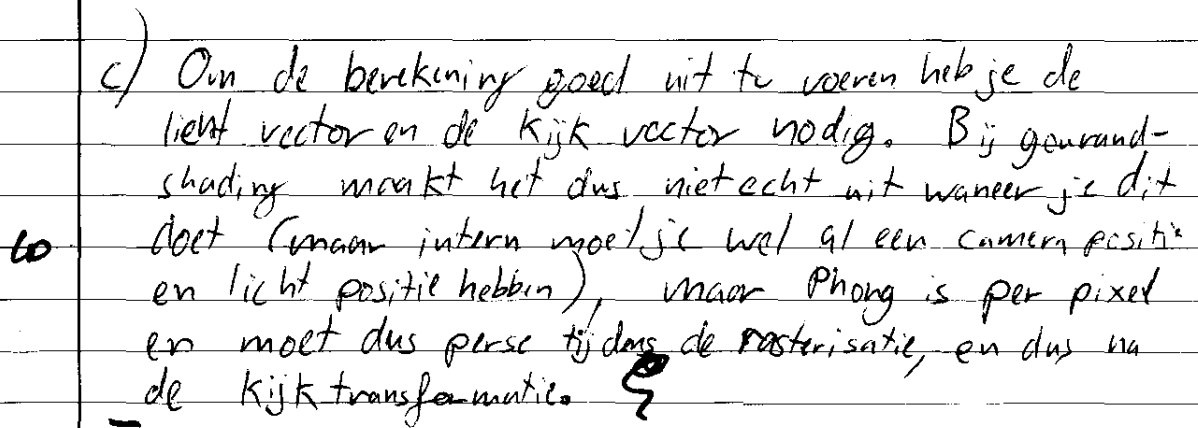 c) Om de berekening goed uit te voeren heb je de
licht vector en de kijk vector nodig. Bij gouraud-
shading maakt het dus niet echt uit waneer je dit
doet (maar intern moet je wel al een camera positie
en licht positie hebben), maar Phong is per pixel
en moet dus perse tijdens de rasterisatie, en dus na
de kijktransformatie.